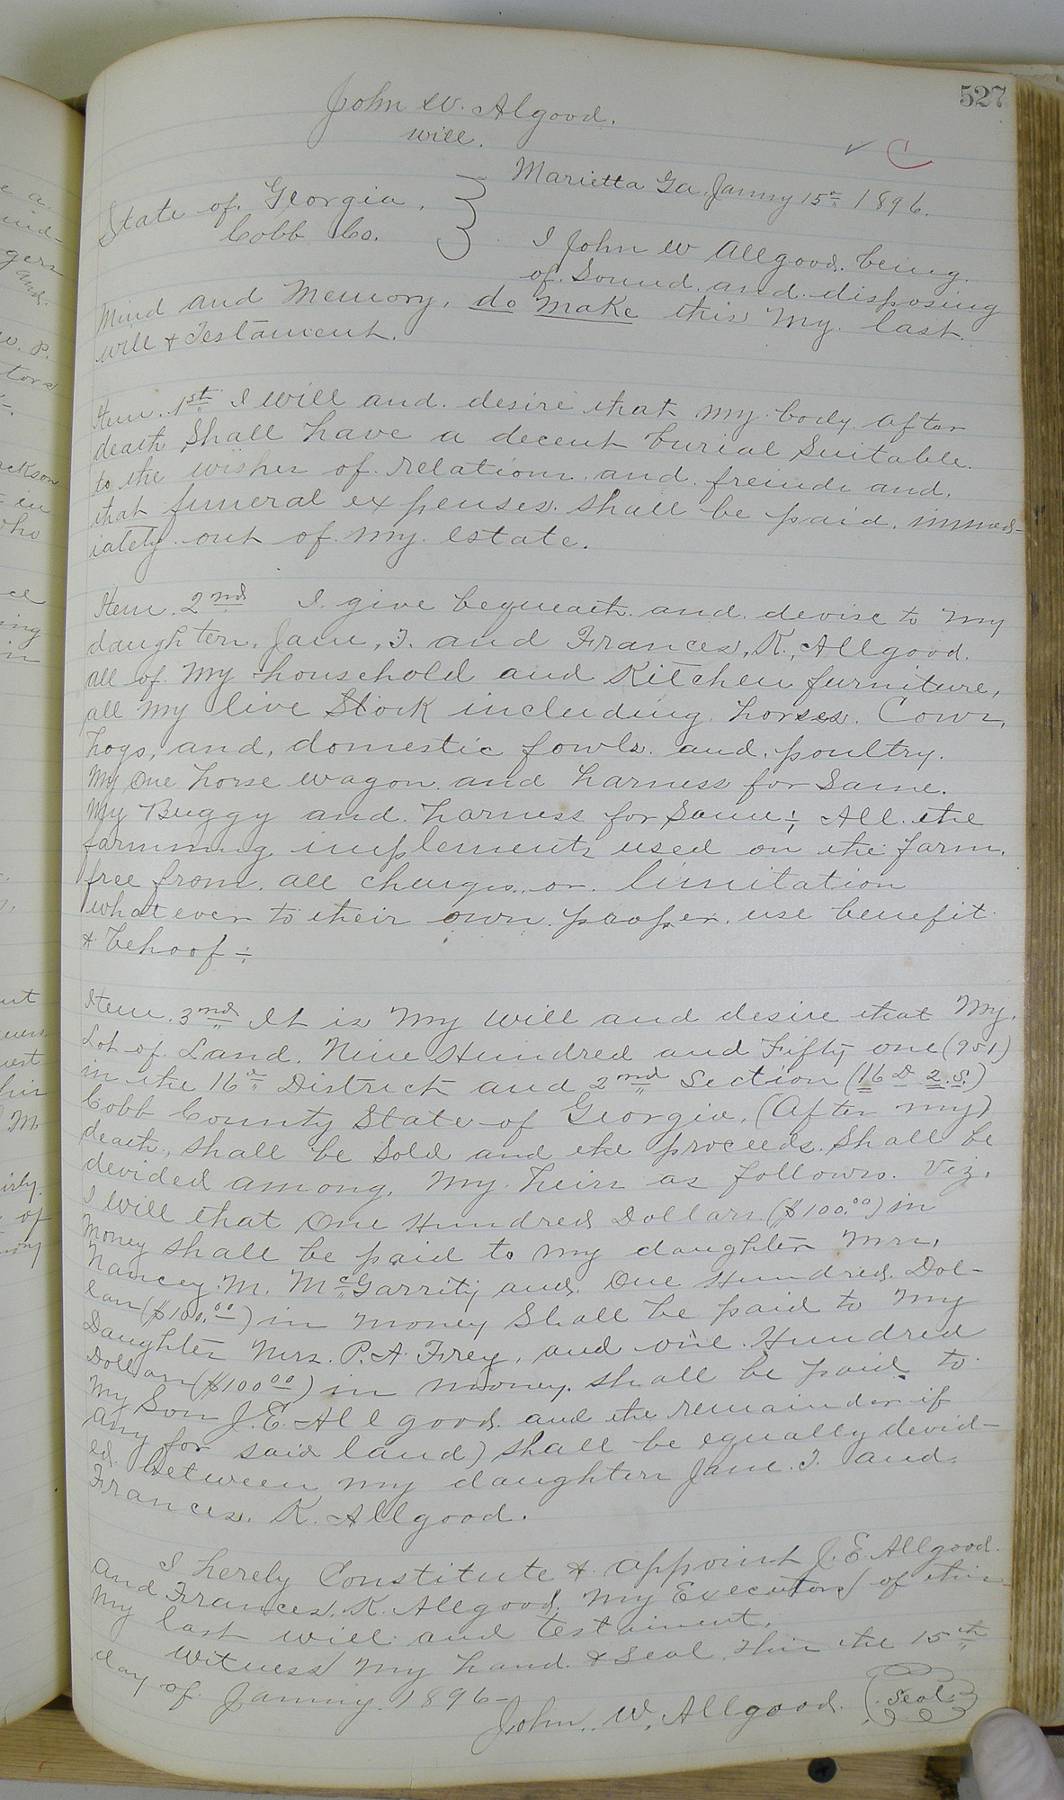 527
John W. Algood.
will.
C
Marietta Ga. Janry 15th 1896.
State of Georgia.
Cobb Co.
I John W Allgood. being
of Sound. and. disposing
Mind and Memory. do make this my. last
will & Testament.
Item. 1st I will and. desire that my. body. after
death, Shall have a decent burial Suitable
to the wishes of relations. and. freinds and.
that funeral expenses. shall be paid. immed-
iately out of my. estate.
Item. 2nd I. give bequeath. and. devise to my
daughters. Jane, T. and Frances, K., Allgood.
all of my household and Kitchen furniture,
all my live Stock including horses. Cows,
hogs, and, domestic fowls. and. poultry.
My one horse wagon and harness for Same.
My Buggy and. harness for Same:, All. the
farmming implements used on the farm.
free from. all charges. or. limitation
whatever to their own. proper. use benefit
& behoof:
Item. 3nd It is my will and desire that My.
Lot of Land. Nine Hundred and Fifty one (951)
in the 16th District and 2nd Section (16 D 2. S.)
Cobb County State of Georgia, (After my)
death, shall be Sold and the proceeds. Shall be
devided among. My heirs as follows. Viz.
I will that One Hundred Dollars ($100.00) in
Money shall be paid to my daughter Mrs.
Nancey. M. McGarrity and. One Hundred. Dol-
lars ($100.00) in money Shall be paid to My
Daughter Mrs. P. A. Frey, and one Hundred
Dollars ($100 00) in money. shall be paid to
My Son J. E. Allgood. and the remainder if
any for said land) shall be equally devid-
ed. between my daughters Jane. T. and.
Frances. K. Allgood.
I hereby Constitute & appoint J. E. Allgood.
and Frances. K. Allgood, my Executors of this
My last will and testament.
Witness My hand. & Seal, this the 15th
day of Janry 1896-
John. W. Allgood. Seal